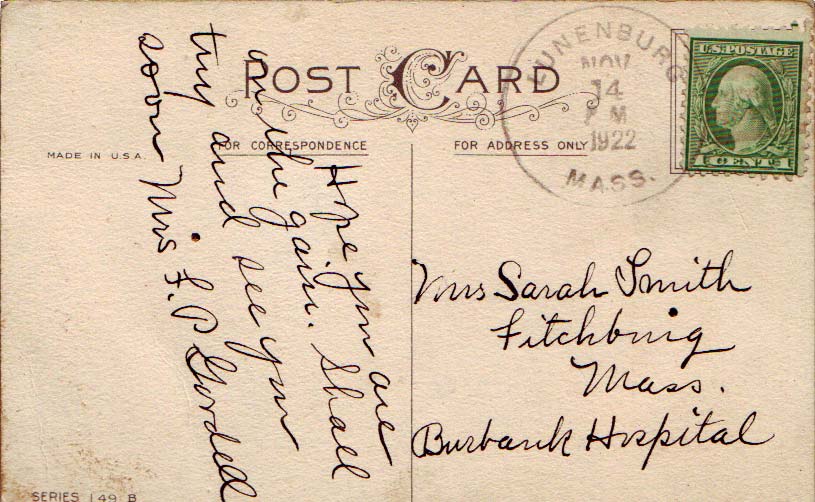 POST CARD
FOR CORRESPONDENCE
FOR ADDRESS ONLY
MADE IN U.S.A.
LUNENBURG
NOV
14
P M
1922
MASS.
U.S. POSTAGE
1 CENT 1
Hope you are
on the gain. Shall
try and see you
soon Mrs F. P. Gorded
Mrs Sarah Smith
Fitchburg
Mass.
Burbank Hospital
SERIES 149 B